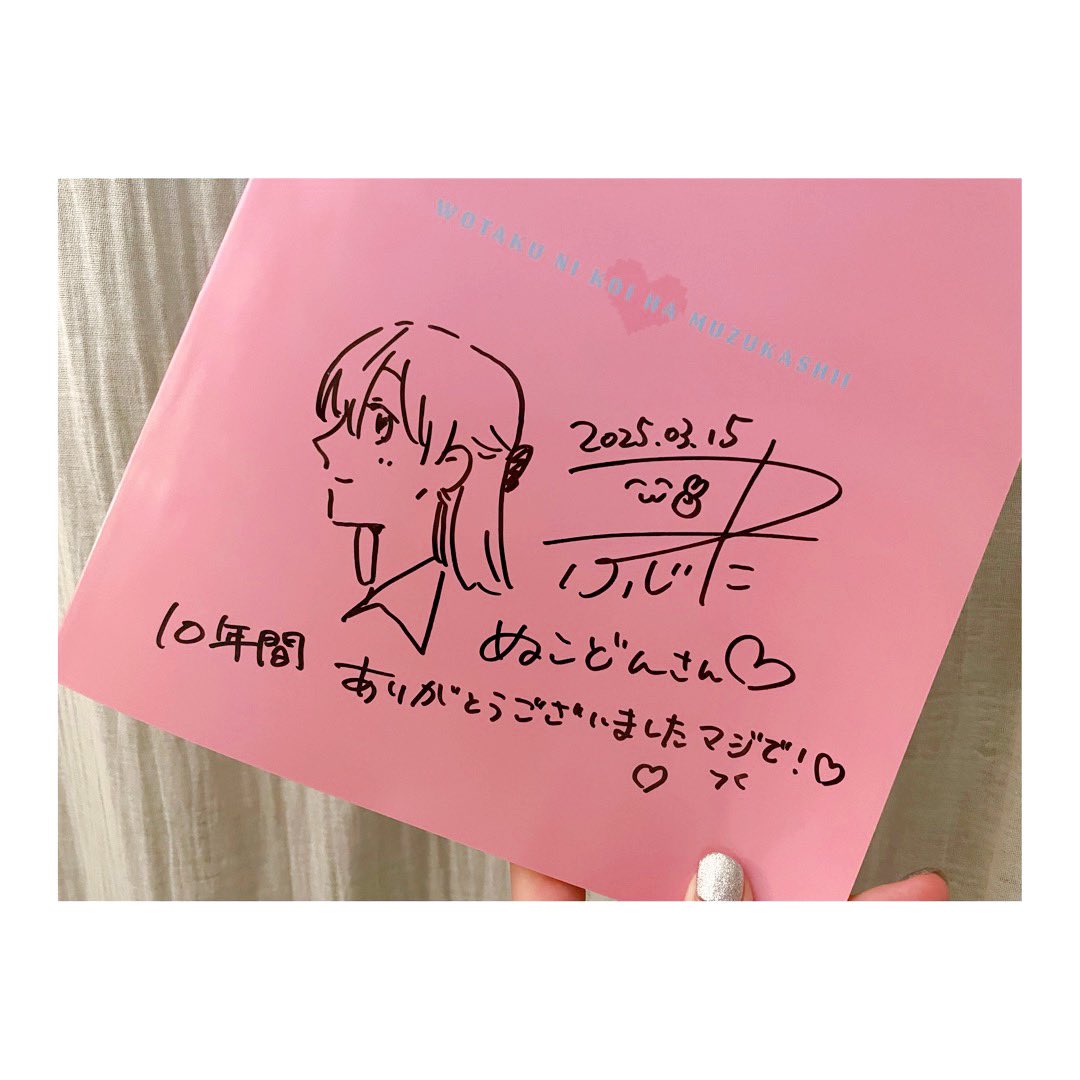 WOTAKU NI KOI HA MUZUKASHII
2025.03.15
ふじた
ぬこどんさん♡
10年間
ありがとうございましたマジで！♡